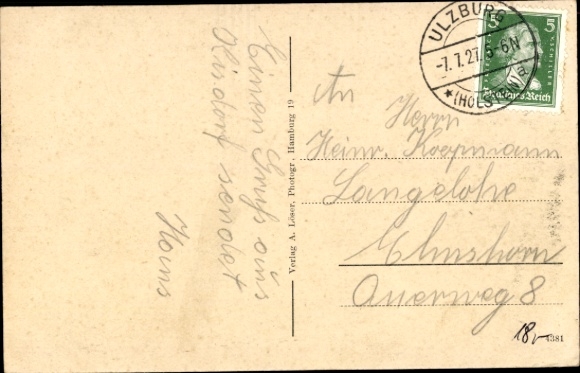 Einen Gruß aus
Ulsdorf sendet
Hans
Verlag A. Löser, Photogr., Hamburg 19
ULZBURG
-7.7.27.5-6N
a
* (HOLSTEIN)
5 5
Deutsches Reich
An
Herrn
Heinr. Koopmann
Langelohe
Elmshorn
Querweg 8
18,-
4381